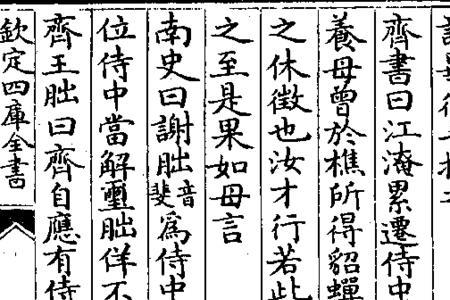 齊書曰江淹累遷侍中
養母曽於樵所得貂蟬
之休徴也汝才行若此
之至是果如母言
南史曰謝朏音斐爲侍中
位侍中當解璽朏佯不
齊王朏曰齊自應有侍
欽定四庫全書